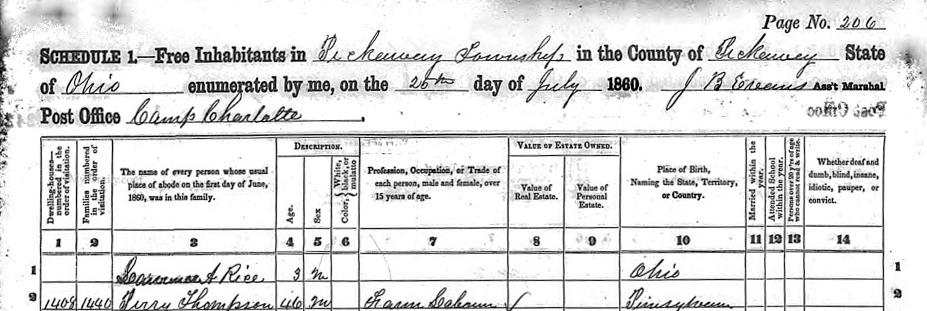 Page No. 206
SCHEDULE 1.—Free Inhabitants in Pickaway Township in the County of Pickaway State
of Ohio enumerated by me, on the 25th day of July 1860. J B Evans Ass't Marshal
Post Office Camp Charlotte. Post Office
DESCRIPTION. VALUE OF ESTATE OWNED.
Dwelling-houses—numbered in the order of visitation.
Families numbered in the order of visitation.
The name of every person whose usual place of abode on the first day of June, 1860, was in this family.
Age.
Sex
Color, { White, black, or mulatto
Profession, Occupation, or Trade of each person, male and female, over 15 years of age.
Value of Real Estate.
Value of Personal Estate.
Place of Birth, Naming the State, Territory, or Country.
Married within the year.
Attended School within the year.
Persons over 20 y'rs of age who cannot read & write.
Whether deaf and dumb, blind, insane, idiotic, pauper, or convict.
1 2 3 4 5 6 7 8 9 10 11 12 13 14
1 A Rice 3 m Ohio 1
2 1408 1440 Perry Thompson 46 m Farm 2